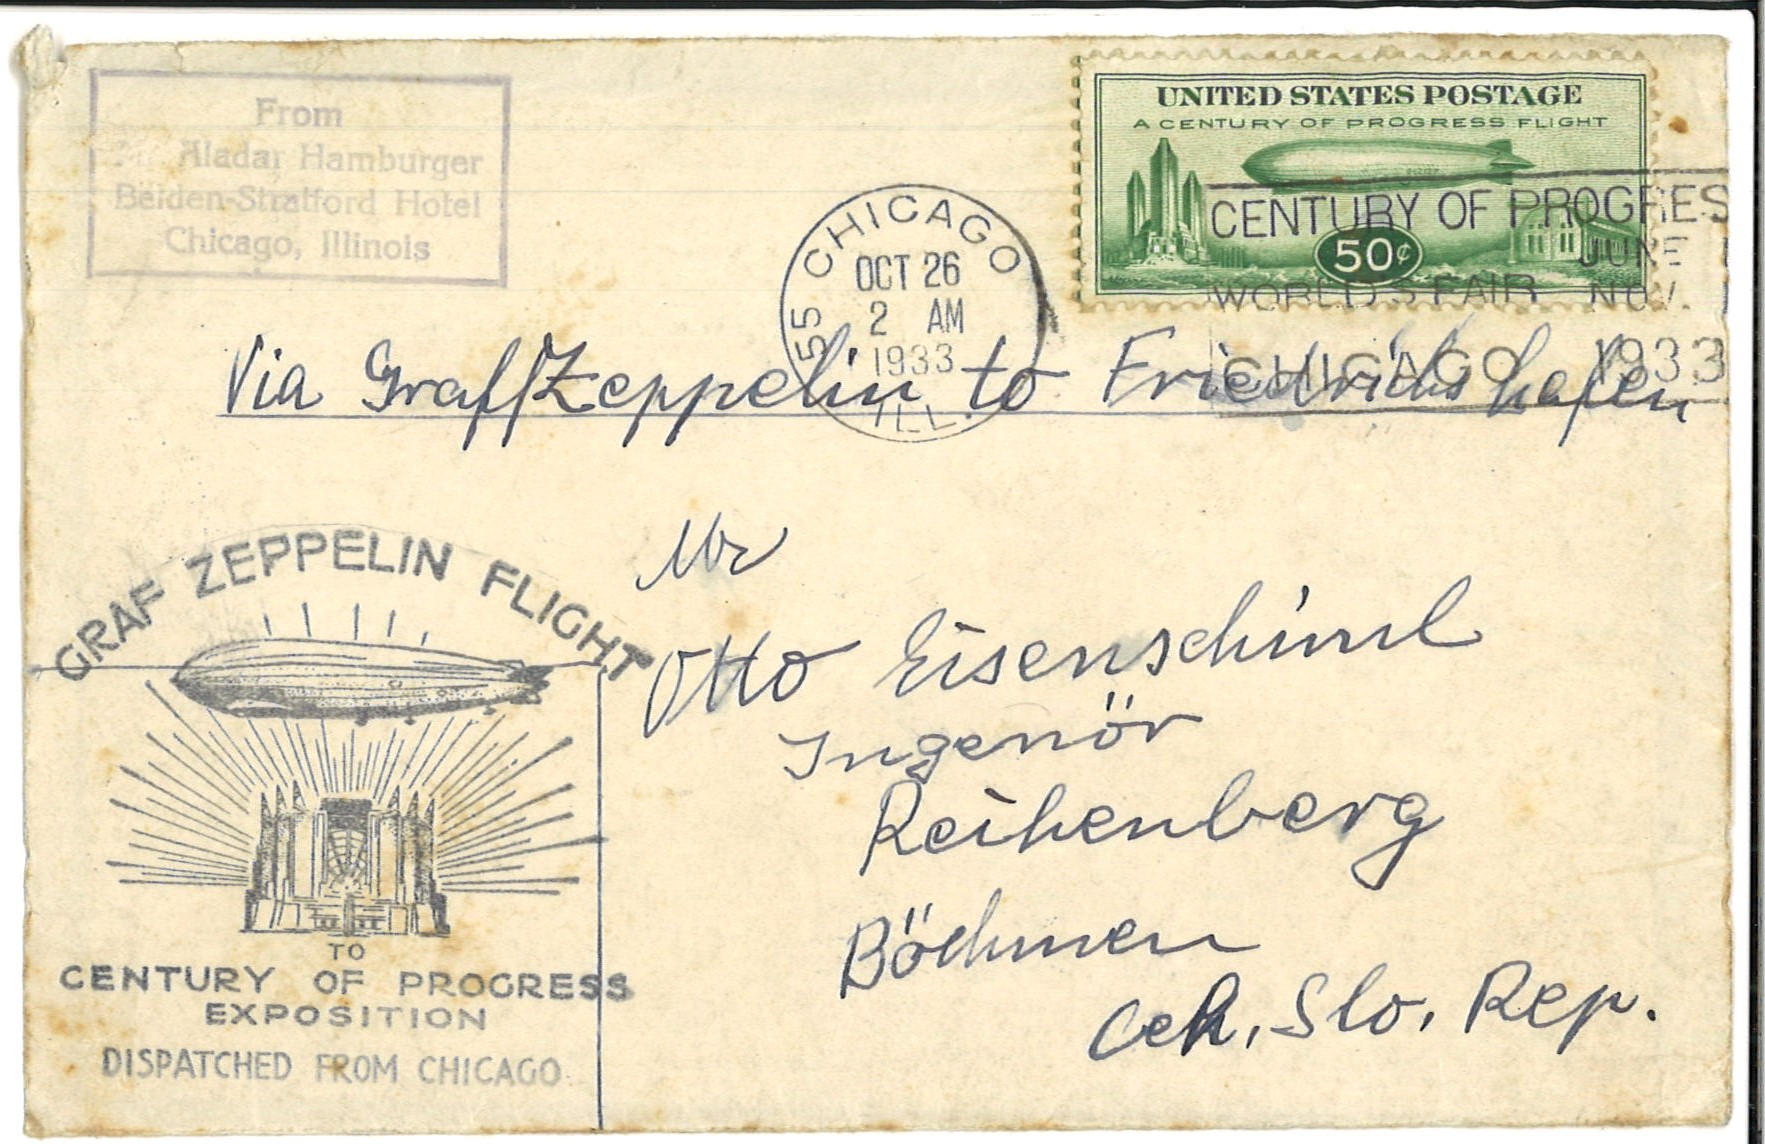 From
Mr. Aladar Hamburger
Belden-Stratford Hotel
Chicago, Illinois
UNITED STATES POSTAGE
A CENTURY OF PROGRESS FLIGHT
50¢
55 CHICAGO
OCT 26
2 AM
1933
ILL.
CENTURY OF PROGRES
JUNE 1
WORLD'S FAIR NOV. 1
CHICAGO 1933
Via Graf Zeppelin to Friedrichshafen
Mr
Otto Eisenschiml
Ingenör
Reihenberg
Böhmen
Ceh. Slo. Rep.
GRAF ZEPPELIN FLIGHT
TO
CENTURY OF PROGRESS
EXPOSITION
DISPATCHED FROM CHICAGO